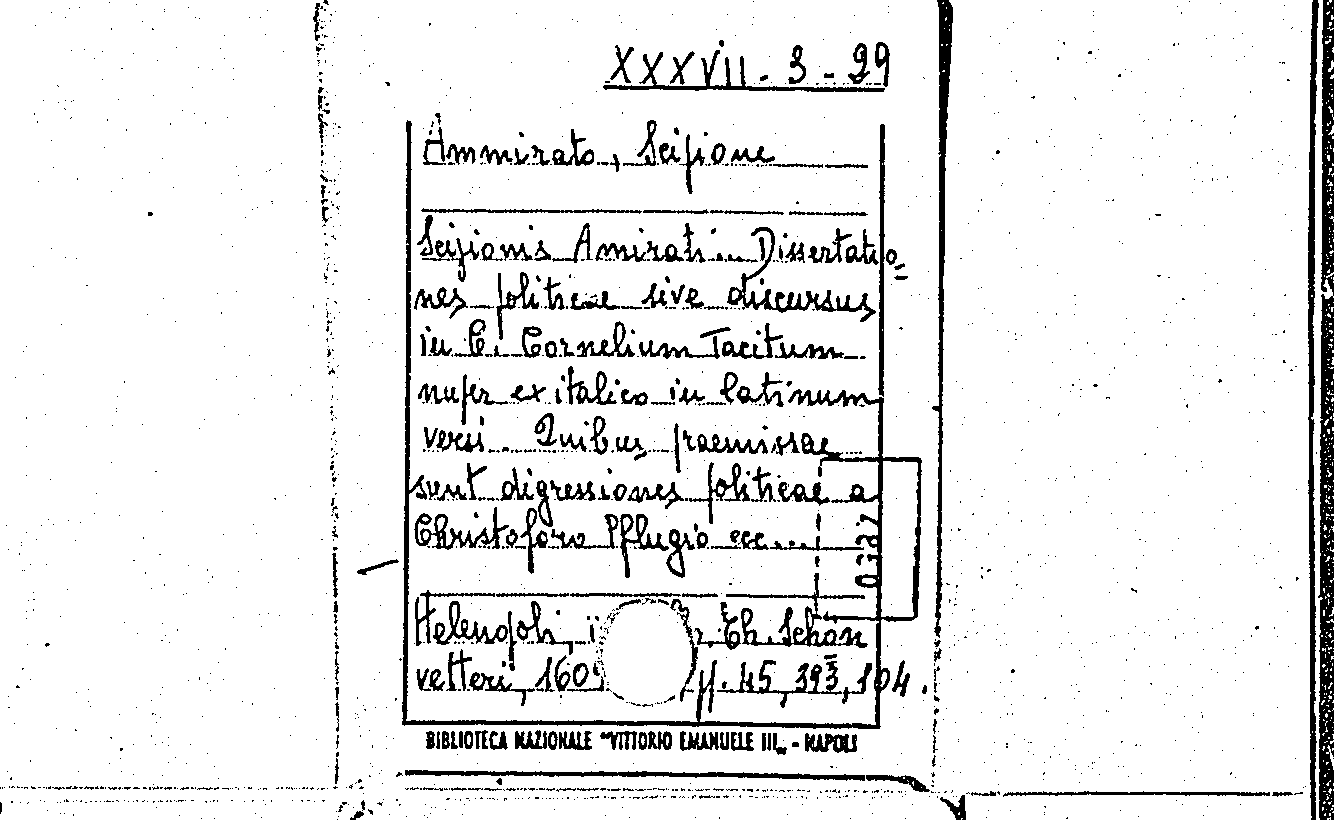 XXXVII - 3 - 29
Ammirato, Scipione
Scipionis Amirati... Dissertatio=
nes politicae sive discursus
in C. Cornelium Tacitum
nuper ex italico in latinum
versi. Quibus praemissae
sunt digressiones politicae a
Christoforo Pflugio ecc...
0387
Helenopoli, Th. Schön
vetteri, 1609 pp. 45, 393, 104.
BIBLIOTECA NAZIONALE "VITTORIO EMANUELE III„ - NAPOLI